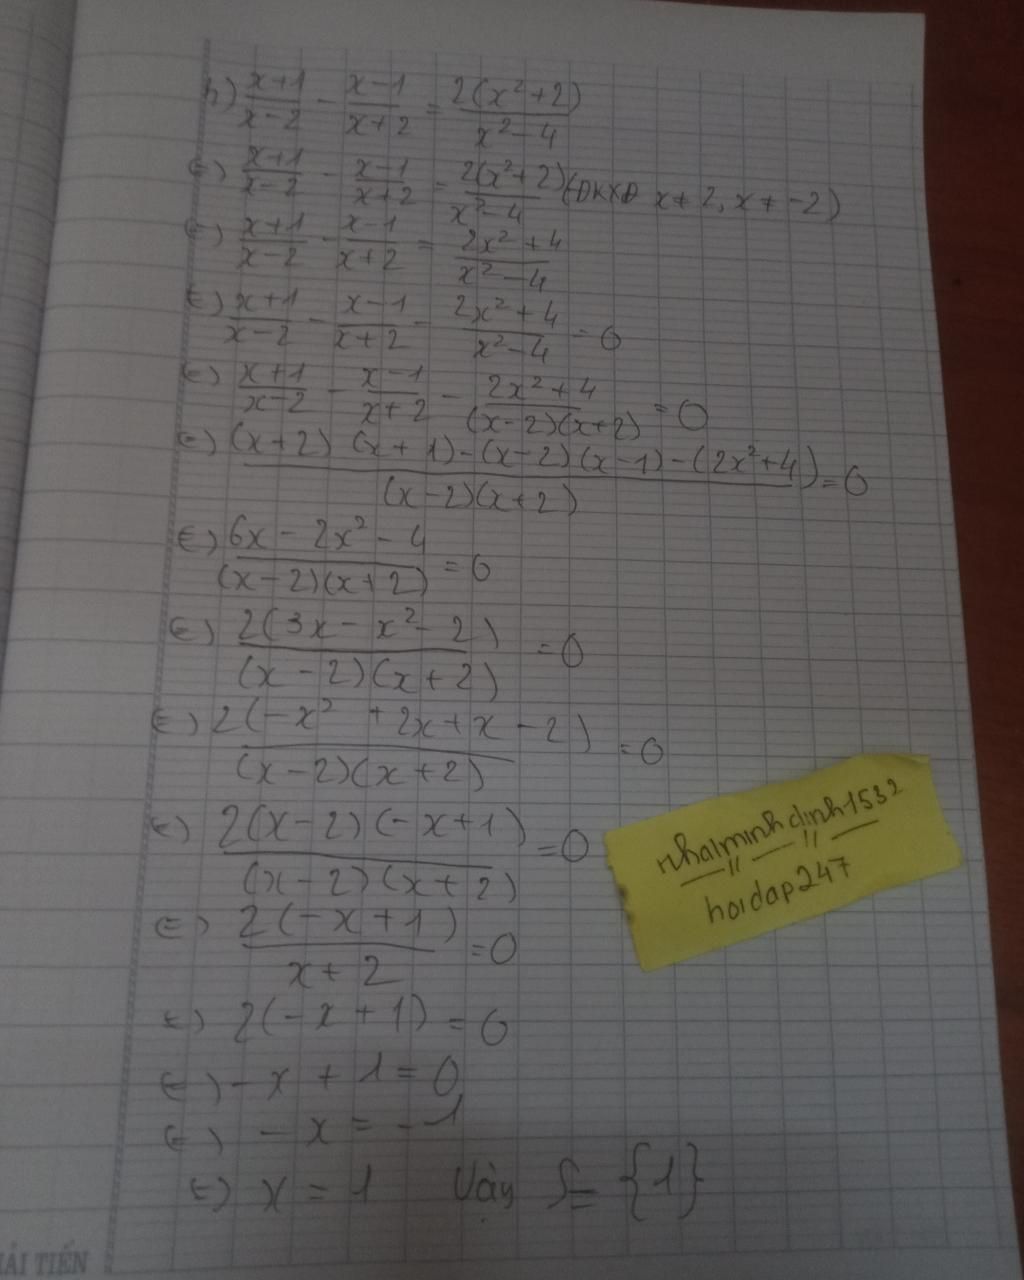 h) \frac{x+1}{x-2} - \frac{x-1}{x+2} = \frac{2(x²+2)}{x²-4}
⇔ \frac{x+1}{x-2} - \frac{x-1}{x+2} = \frac{2(x²+2)}{x²-4} (ĐKXĐ x≠2, x≠-2)
⇔ \frac{x+1}{x-2} - \frac{x-1}{x+2} = \frac{2x²+4}{x²-4}
⇔ \frac{x+1}{x-2} - \frac{x-1}{x+2} - \frac{2x²+4}{x²-4} = 0
⇔ \frac{x+1}{x-2} - \frac{x-1}{x+2} - \frac{2x²+4}{(x-2)(x+2)} = 0
⇔ \frac{(x+2)(x+1)-(x-2)(x-1)-(2x²+4)}{(x-2)(x+2)} = 0
⇔ \frac{6x-2x²-4}{(x-2)(x+2)} = 0
⇔ \frac{2(3x-x²-2)}{(x-2)(x+2)} = 0
⇔ \frac{2(-x²+2x+x-2)}{(x-2)(x+2)} = 0
⇔ \frac{2(x-2)(-x+1)}{(x-2)(x+2)} = 0
⇔ \frac{2(-x+1)}{x+2} = 0
⇔ 2(-x+1) = 0
⇔ -x+1 = 0
⇔ -x = -1
⇔ x = 1 Vậy S = {1}
nhalminhdinh1532
hoidap247
ẢI TIẾN